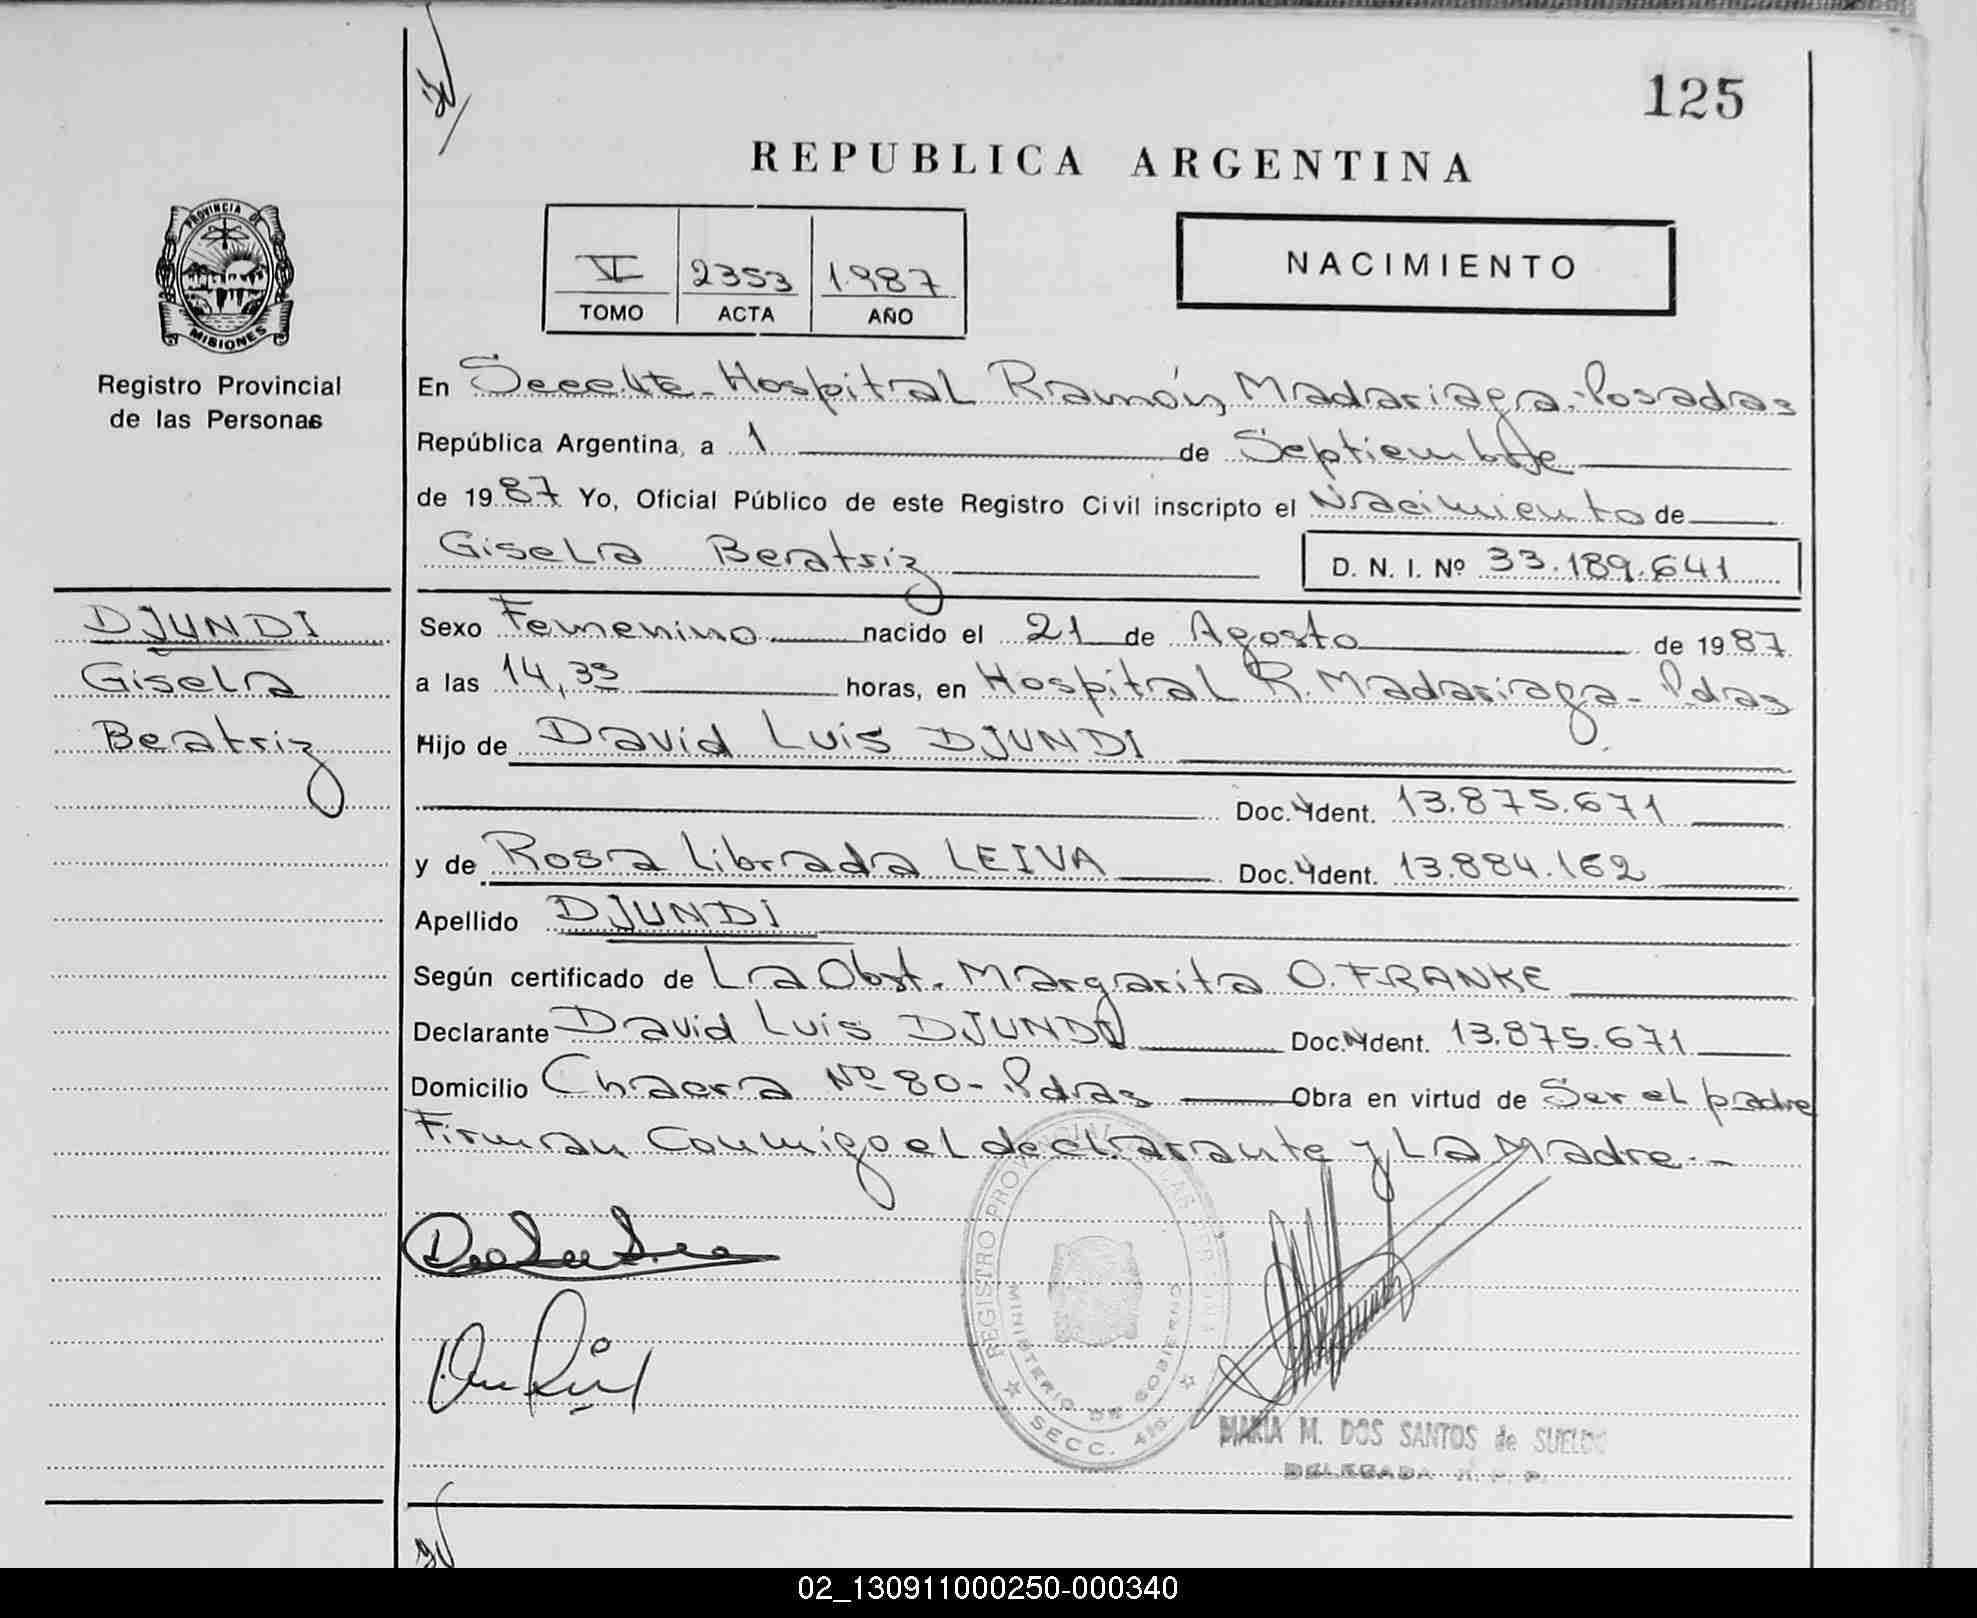 125
REPUBLICA ARGENTINA
V 2353 1.987
TOMO ACTA AÑO
NACIMIENTO
PROVINCIA DE
MISIONES
Registro Provincial
de las Personas
En Secc. 4ta - Hospital Ramón Madariaga.- Posadas
República Argentina, a 1 de Septiembre
de 1987 Yo, Oficial Público de este Registro Civil inscripto el Nacimiento de
Gisela Beatriz D. N. I. Nº 33.189.641
DJUNDI
Gisela
Beatriz
Sexo Femenino nacido el 21 de Agosto de 1987
a las 14,35 horas, en Hospital R. Madariaga - Pdas
Hijo de David Luis DJUNDI
Doc. Ident. 13.875.671
y de Rosa Librada LEIVA Doc. Ident. 13.884.162
Apellido DJUNDI
Según certificado de La Obst. Margarita O. FRANKE
Declarante David Luis DJUNDI Doc. Ident. 13.875.671
Domicilio Chacra Nº 80 - Pdas Obra en virtud de Ser el padre
Firman Conmigo el declarante y La Madre.-
REGISTRO PROVINCIAL DE LAS PERSONAS
MINISTERIO DE GOBIERNO
SECC. 4ta.
MARIA M. DOS SANTOS de SUELDO
DELEGADA R. P. P.
02_130911000250-000340